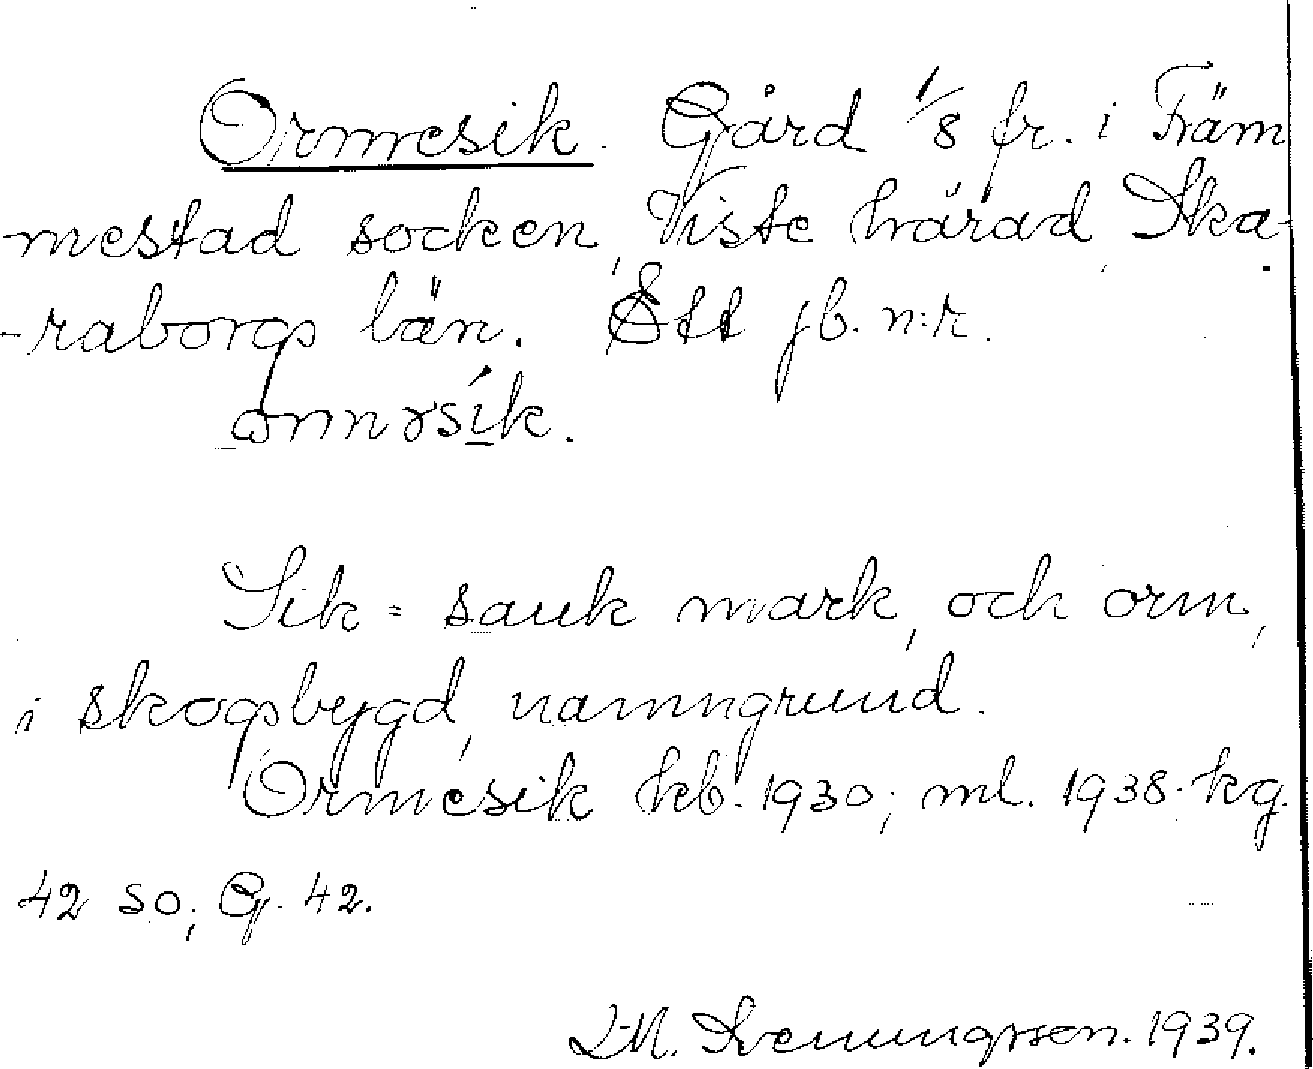 Ormesik. Gård 1/8 fr. i Främ
-mestad socken, Viste härad, Ska-
-raborgs län. Ett jb. n:r.
ormɤsik.
Sik = sank mark, och orm,
i skogsbygd, namngrund.
Ormesik kb. 1930; ml. 1938. kg.
42 so; G. 42.
1939.